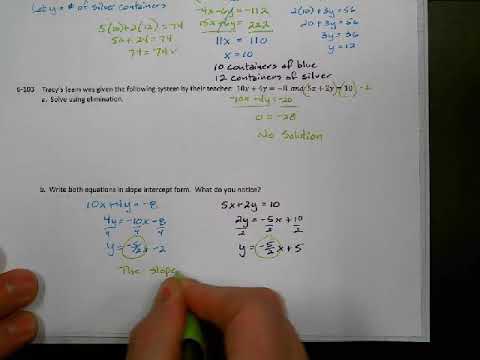 Let y = # of silver containers
5(10)+2(12)=74
50+24=74
74=74 ✓
-4x-6y=-112
15x+6y=222
11x = 110
x=10
2(10)+3y=56
20+3y=56
3y=36
y=12
10 containers of blue
12 containers of silver
6-103 Tracy's team was given the following system by their teacher: 10x + 4y = -8 and (5x + 2y = 10) · -2
a. Solve using elimination.
-10x-4y=-20
0=-28
No Solution
b. Write both equations in slope intercept form. What do you notice?
10x+4y=-8
4y=-10x-8
4 4 4
y=-5/2x-2
5x+2y=10
2y=-5x+10
2 2 2
y=-5/2x+5
The slope